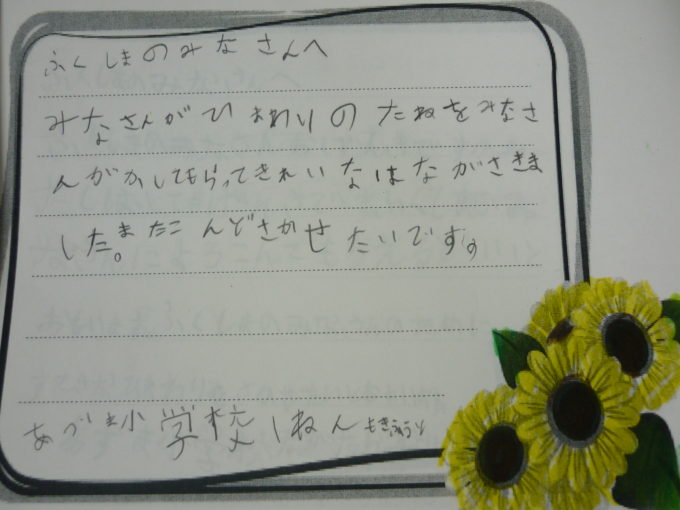 ふくしまのみなさんへ
みなさんがひまわりのたねをみなさ
んがかしてもらってきれいなはながさきま
した。またこんどさかせたいです。
あづま小学校1ねん